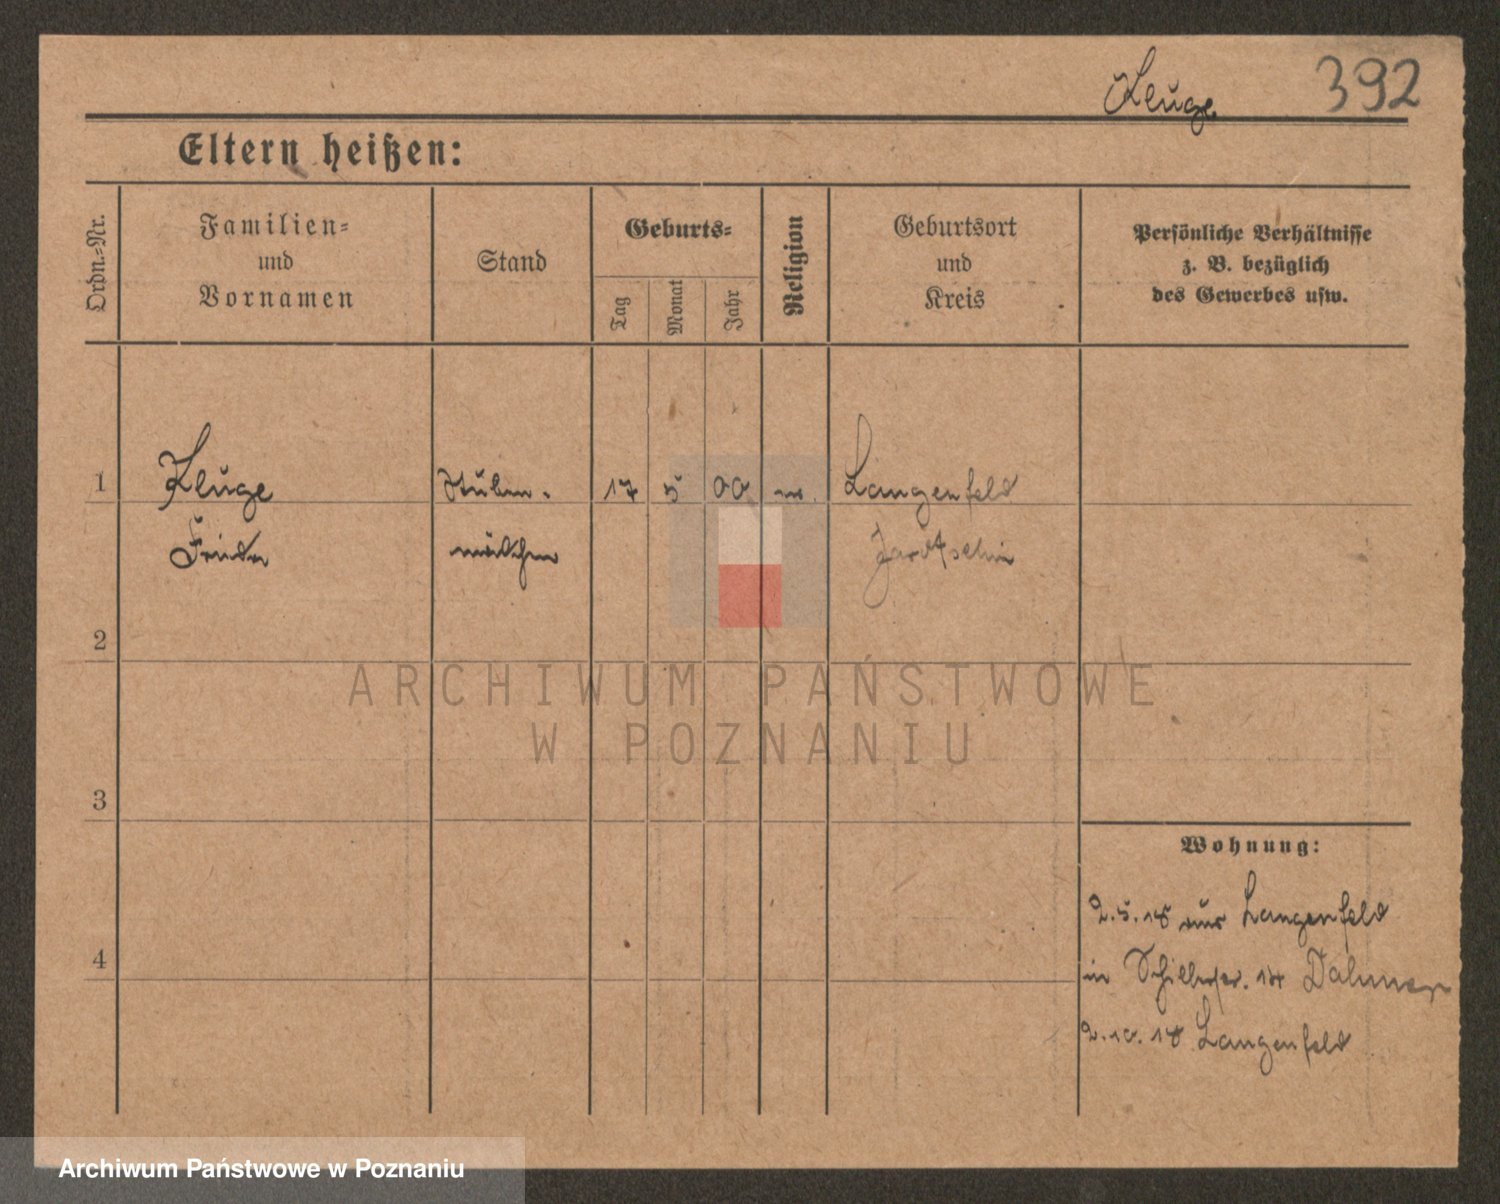 Kluge
392
Eltern heißen:
Ordn.=Nr.
Familien=
und
Vornamen
Stand
Geburts=
Tag
Monat
Jahr
Religion
Geburtsort
und
Kreis
Persönliche Verhältnisse
z. B. bezüglich
des Gewerbes usw.
1
Kluge
Stuben-
17
5
00
Langenfeld
Frieda
mädchen
Jarotschin
2
ARCHIWUM PAŃSTWOWE
W POZNANIU
3
Wohnung:
2.5.18 aus Langenfeld
4
in Schillerstr. 14 Dahmer
2.10.18 Langenfeld
Archiwum Państwowe w Poznaniu